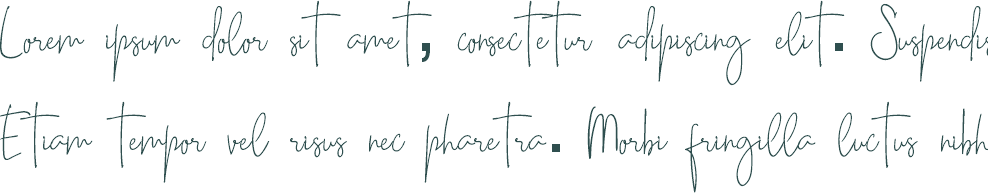 Lorem ipsum dolor sit amet, consectetur adipiscing elit. Suspendis
Etiam tempor vel risus nec pharetra. Morbi fringilla luctus nibh